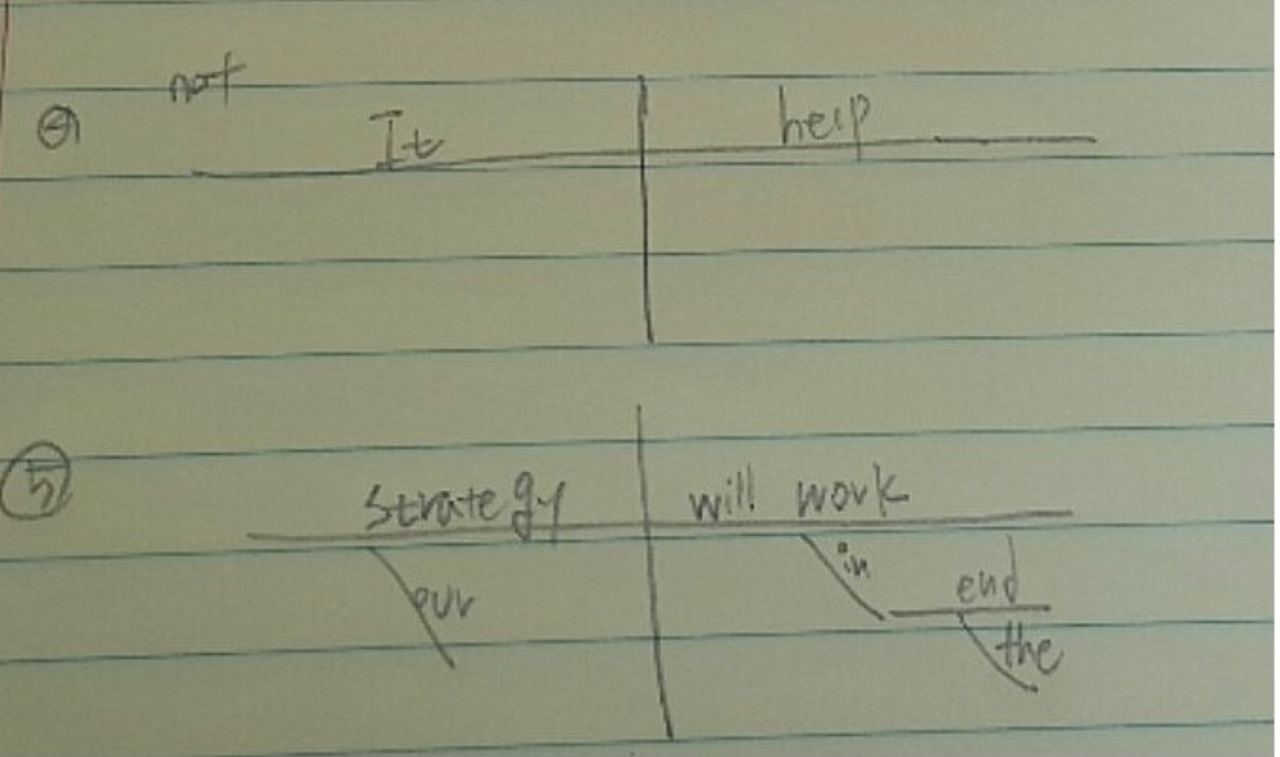 not
④ It help
⑤ strategy will work
our in end
the